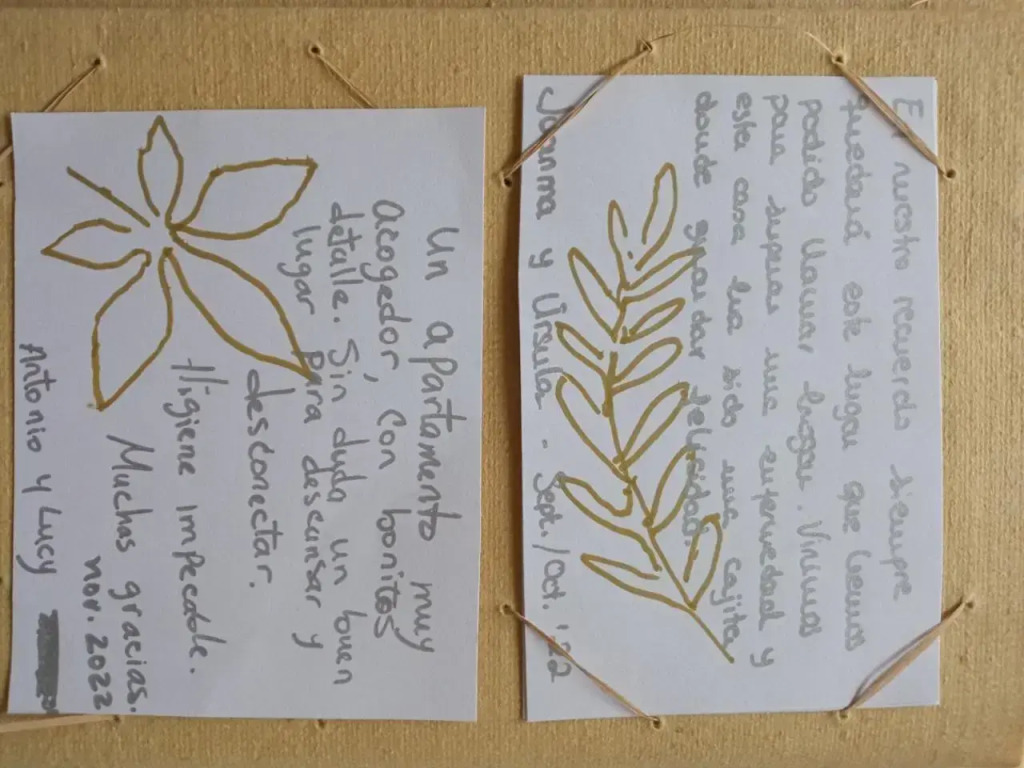 En nuestro recuerdo siempre
quedará este lugar que hemos
podido llamar hogar. Vinimos
para superar una enfermedad y
esta casa ha sido una cajita
donde guardar felicidad.
Joanma y Úrsula - Sept./Oct. '22
Un apartamento muy
acogedor, con bonitos
detalle. Sin duda un buen
lugar para descansar y
desconectar.
Higiene impecable.
Muchas gracias.
nov. 2022
Antonio y Lucy